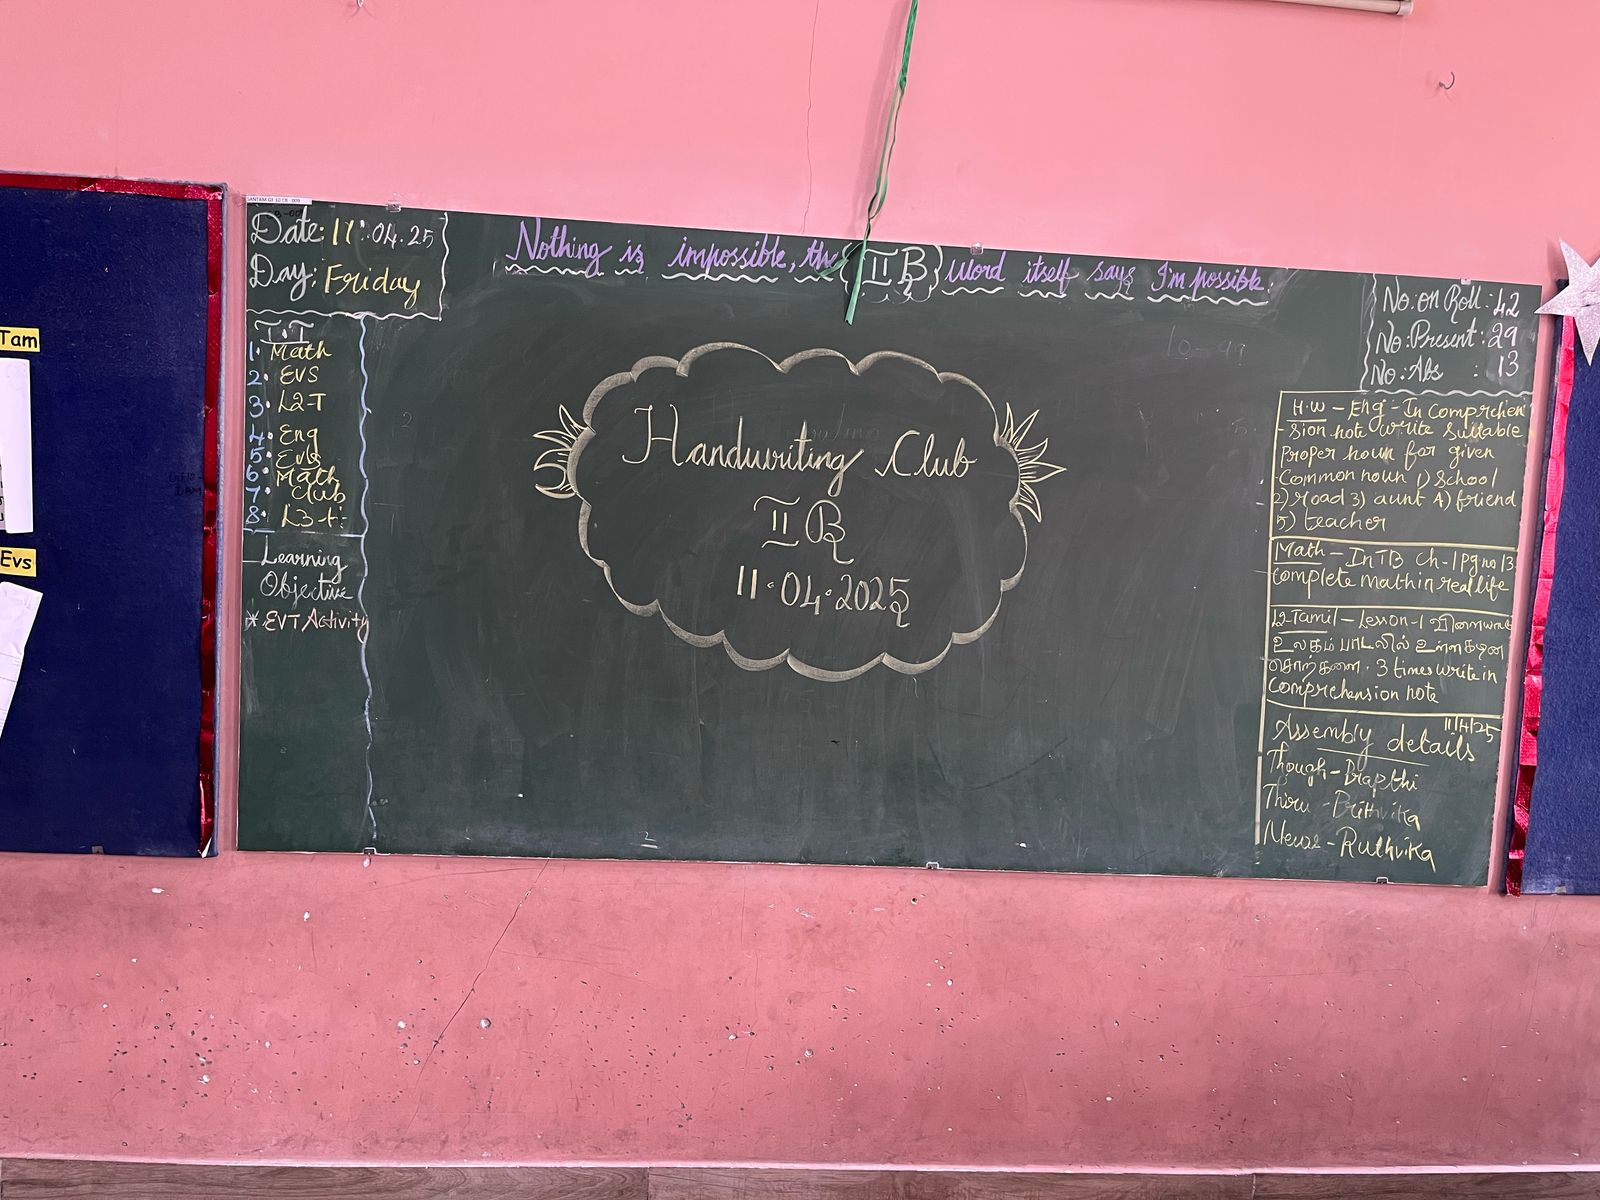 Tam
Evs
Date: 11.04.25
Day: Friday
Nothing is impossible, the {II B} word itself says I'm possible.
No: on Roll: 42
No: Present: 29
No: Abs : 13
T.T
1. Math
2. EVS
3. L2-T
4. Eng
5. EVS
6. Math
7. Club
8. L3-
Learning
Objective
* EVT Activity
Handwriting Club
II B
11.04.2025
H.W - Eng - In comprehen
sion note write suitable
proper noun for given
Common noun 1) School
2) road 3) aunt 4) friend
5) teacher
Math - In TB Ch-1 Pg no 13
complete math in real life
L2 Tamil - Lesson-1
உலகம் பாடலில் உள்ள
3 times write in
comprehension note
11/4/25
Assembly details
Though - Prapthi
Thiru - Brithvika
News - Ruthvika